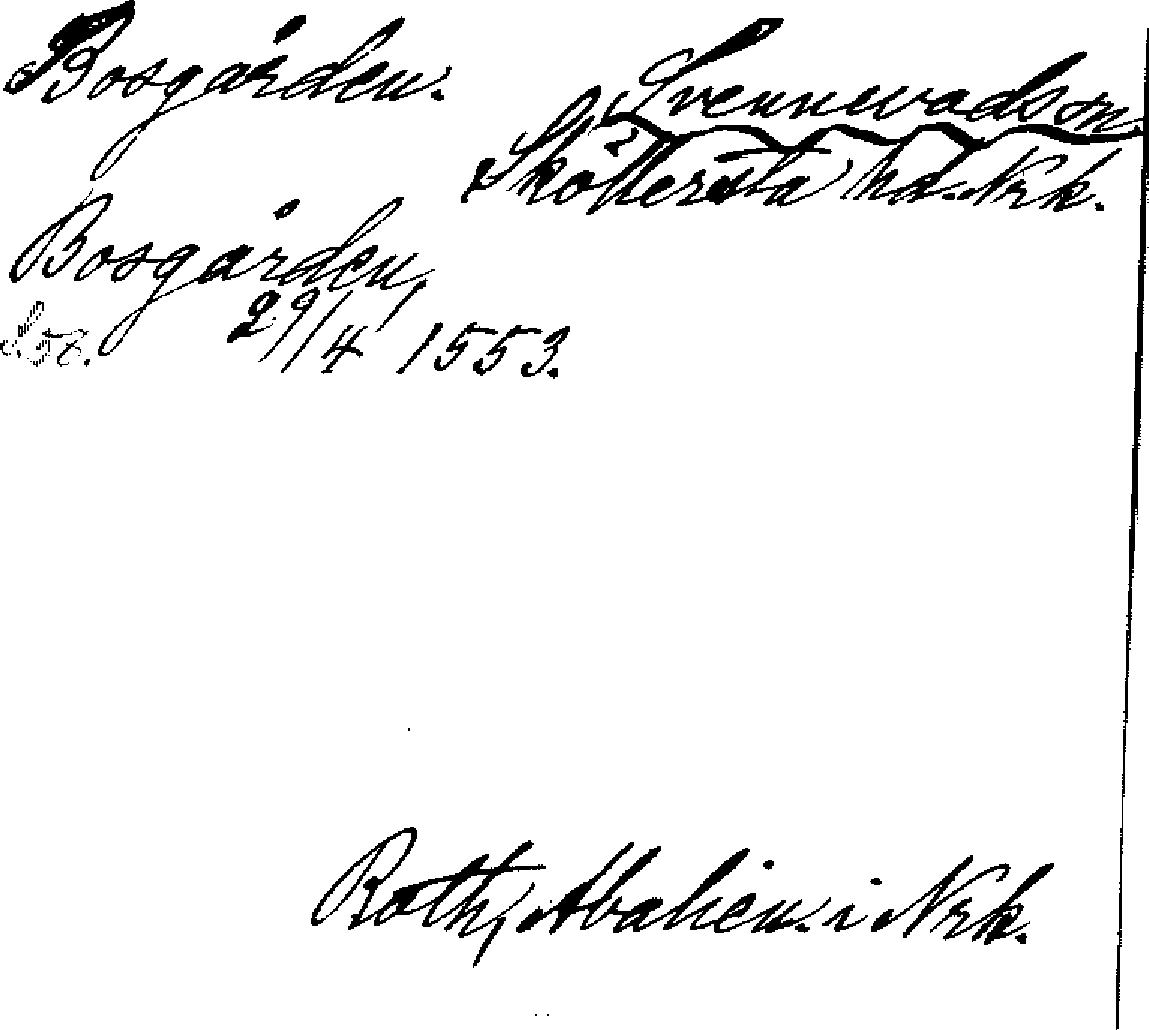 Bosgården.
Svennevads sn.
Sköllersta hd. Nrk.
Bosgården,
29/4 1553.
Roth, Abalien. i Nrk.